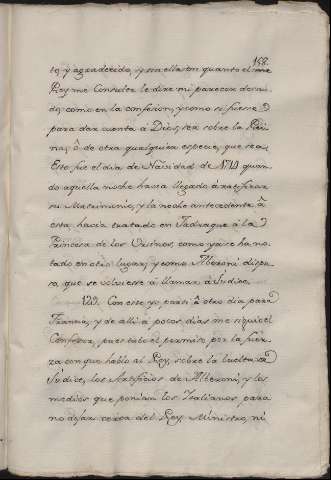 168.
to, y agradecido, y sin ella en quanto el
Rey me Consulte le dire mi parecer desnu-
do, como en la confesion, y como si fuese
para dar cuenta á Dios, sea sobre la Rei-
na, ô de otra qualquiera especie, que sea.
Esto fue el dia de Navidad de 1714 quan-
do aquella noche havia llegado á ratificar
su Matrimonio, y la noche antecedente â
esta havia tratado en Jadraque á la
Princesa de los Ursinos, como ya se ha no-
tado en otro lugar, y como Alberoni dispu-
so, que se volviesse á llamar, á Judice.
129. Con esto yo partí â otro dia para
Francia, y de alli á pocos dias me siguió el
Confesor, pues todo el permiso, por la fuer-
za con que hablo al Rey, sobre la buelta de
Judice, los Artificios de Alberoni, y los
medios que ponian los Italianos para
no dejar cerca del Rey Ministro, ni